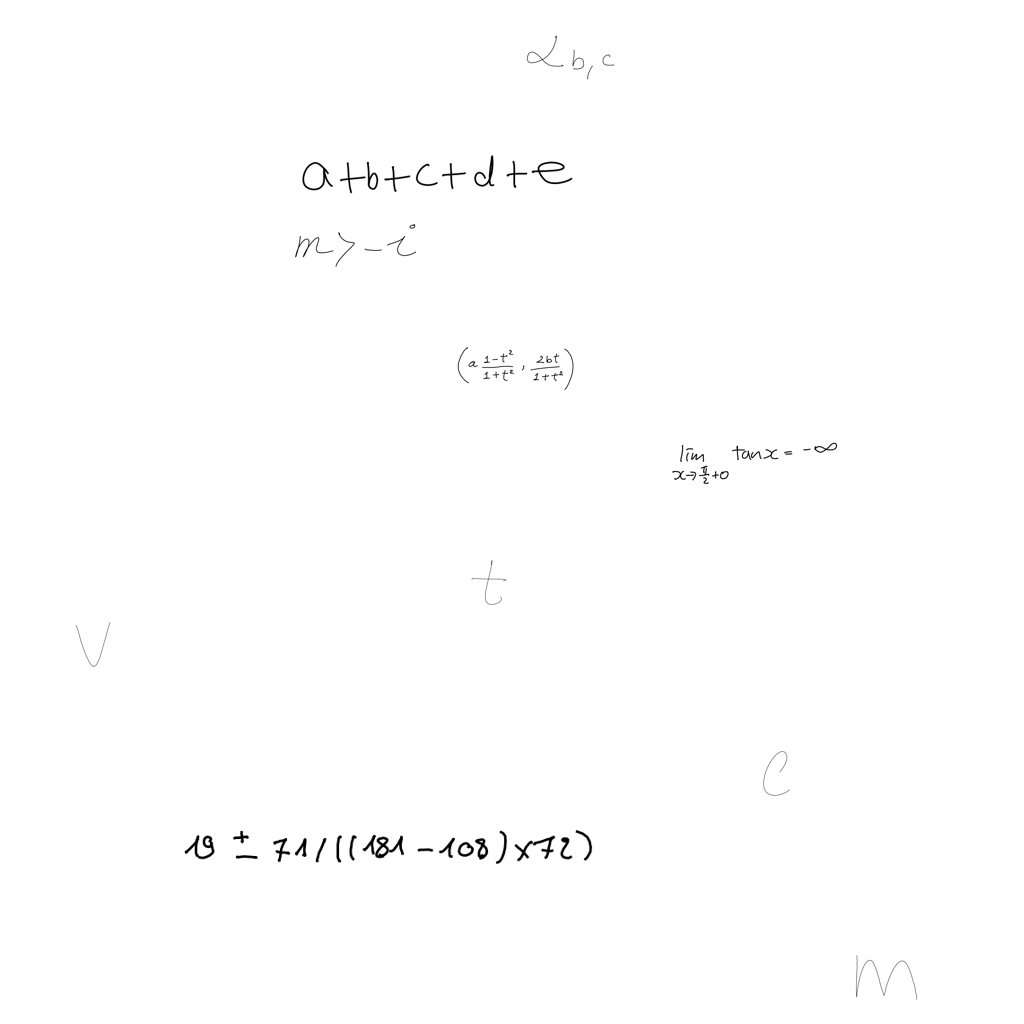 α_{b,c}
a+b+c+d+e
m>-i
(a \frac{1-t^2}{1+t^2}, \frac{2bt}{1+t^2})
\lim_{x→\frac{π}{2}+0} tan x = -∞
t
V
C
19 ± 71/((181-108)×72)
m